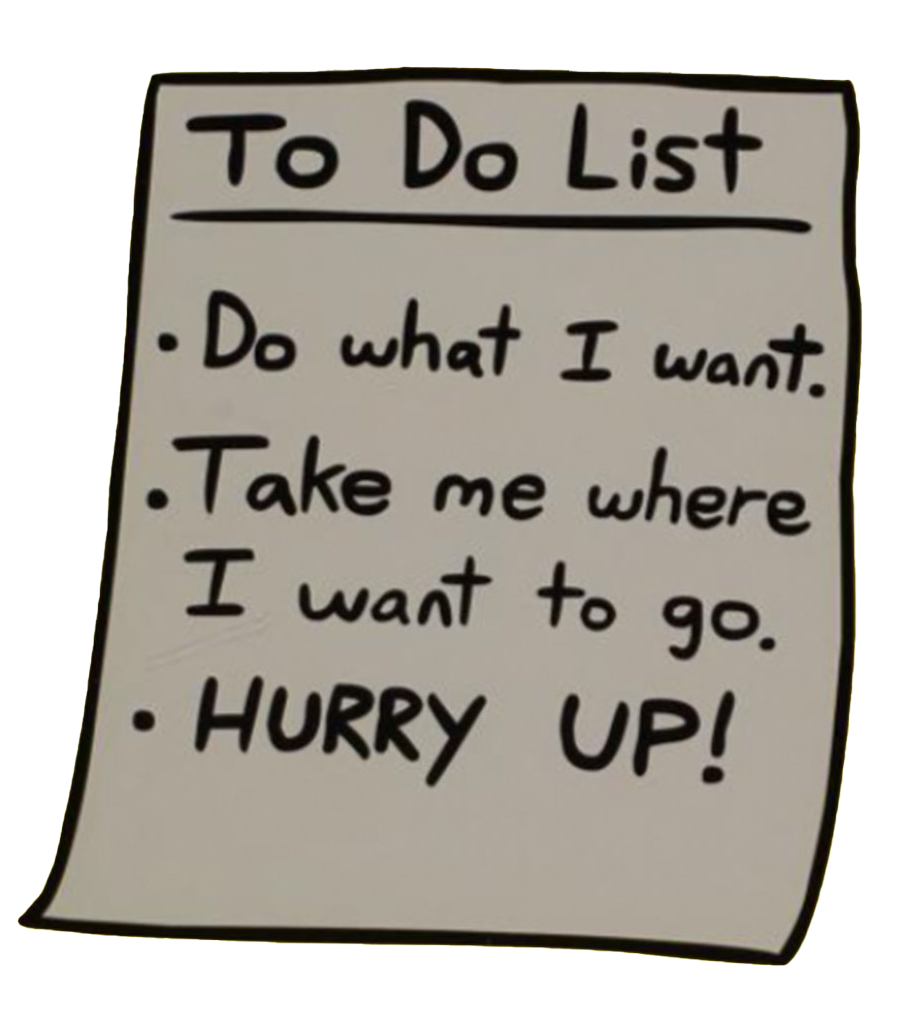 To Do List
• Do what I want.
• Take me where
I want to go.
• HURRY UP!